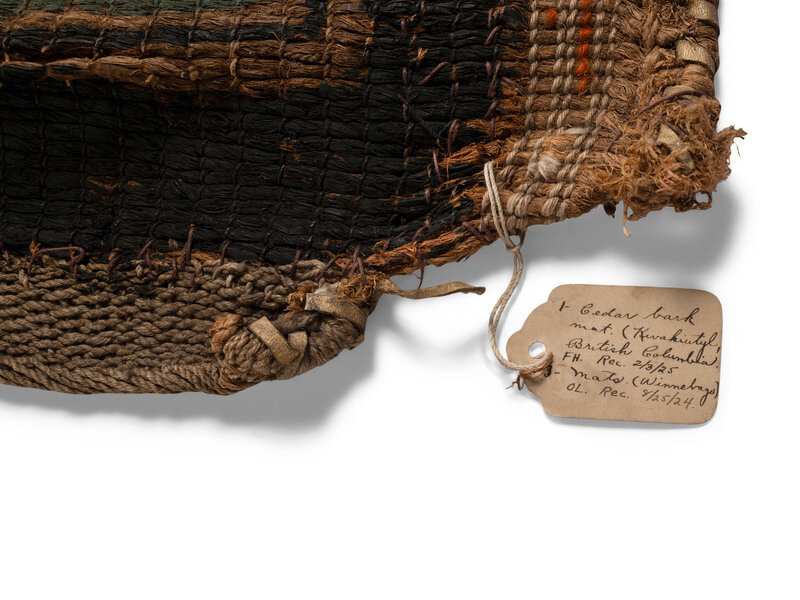 1- Cedar bark
mat. (Kwakiutyl,
British Columbia)
FH. Rec. 2/3/25
- Mats. (Winnebago)
OL. Rec. 8/25/24.